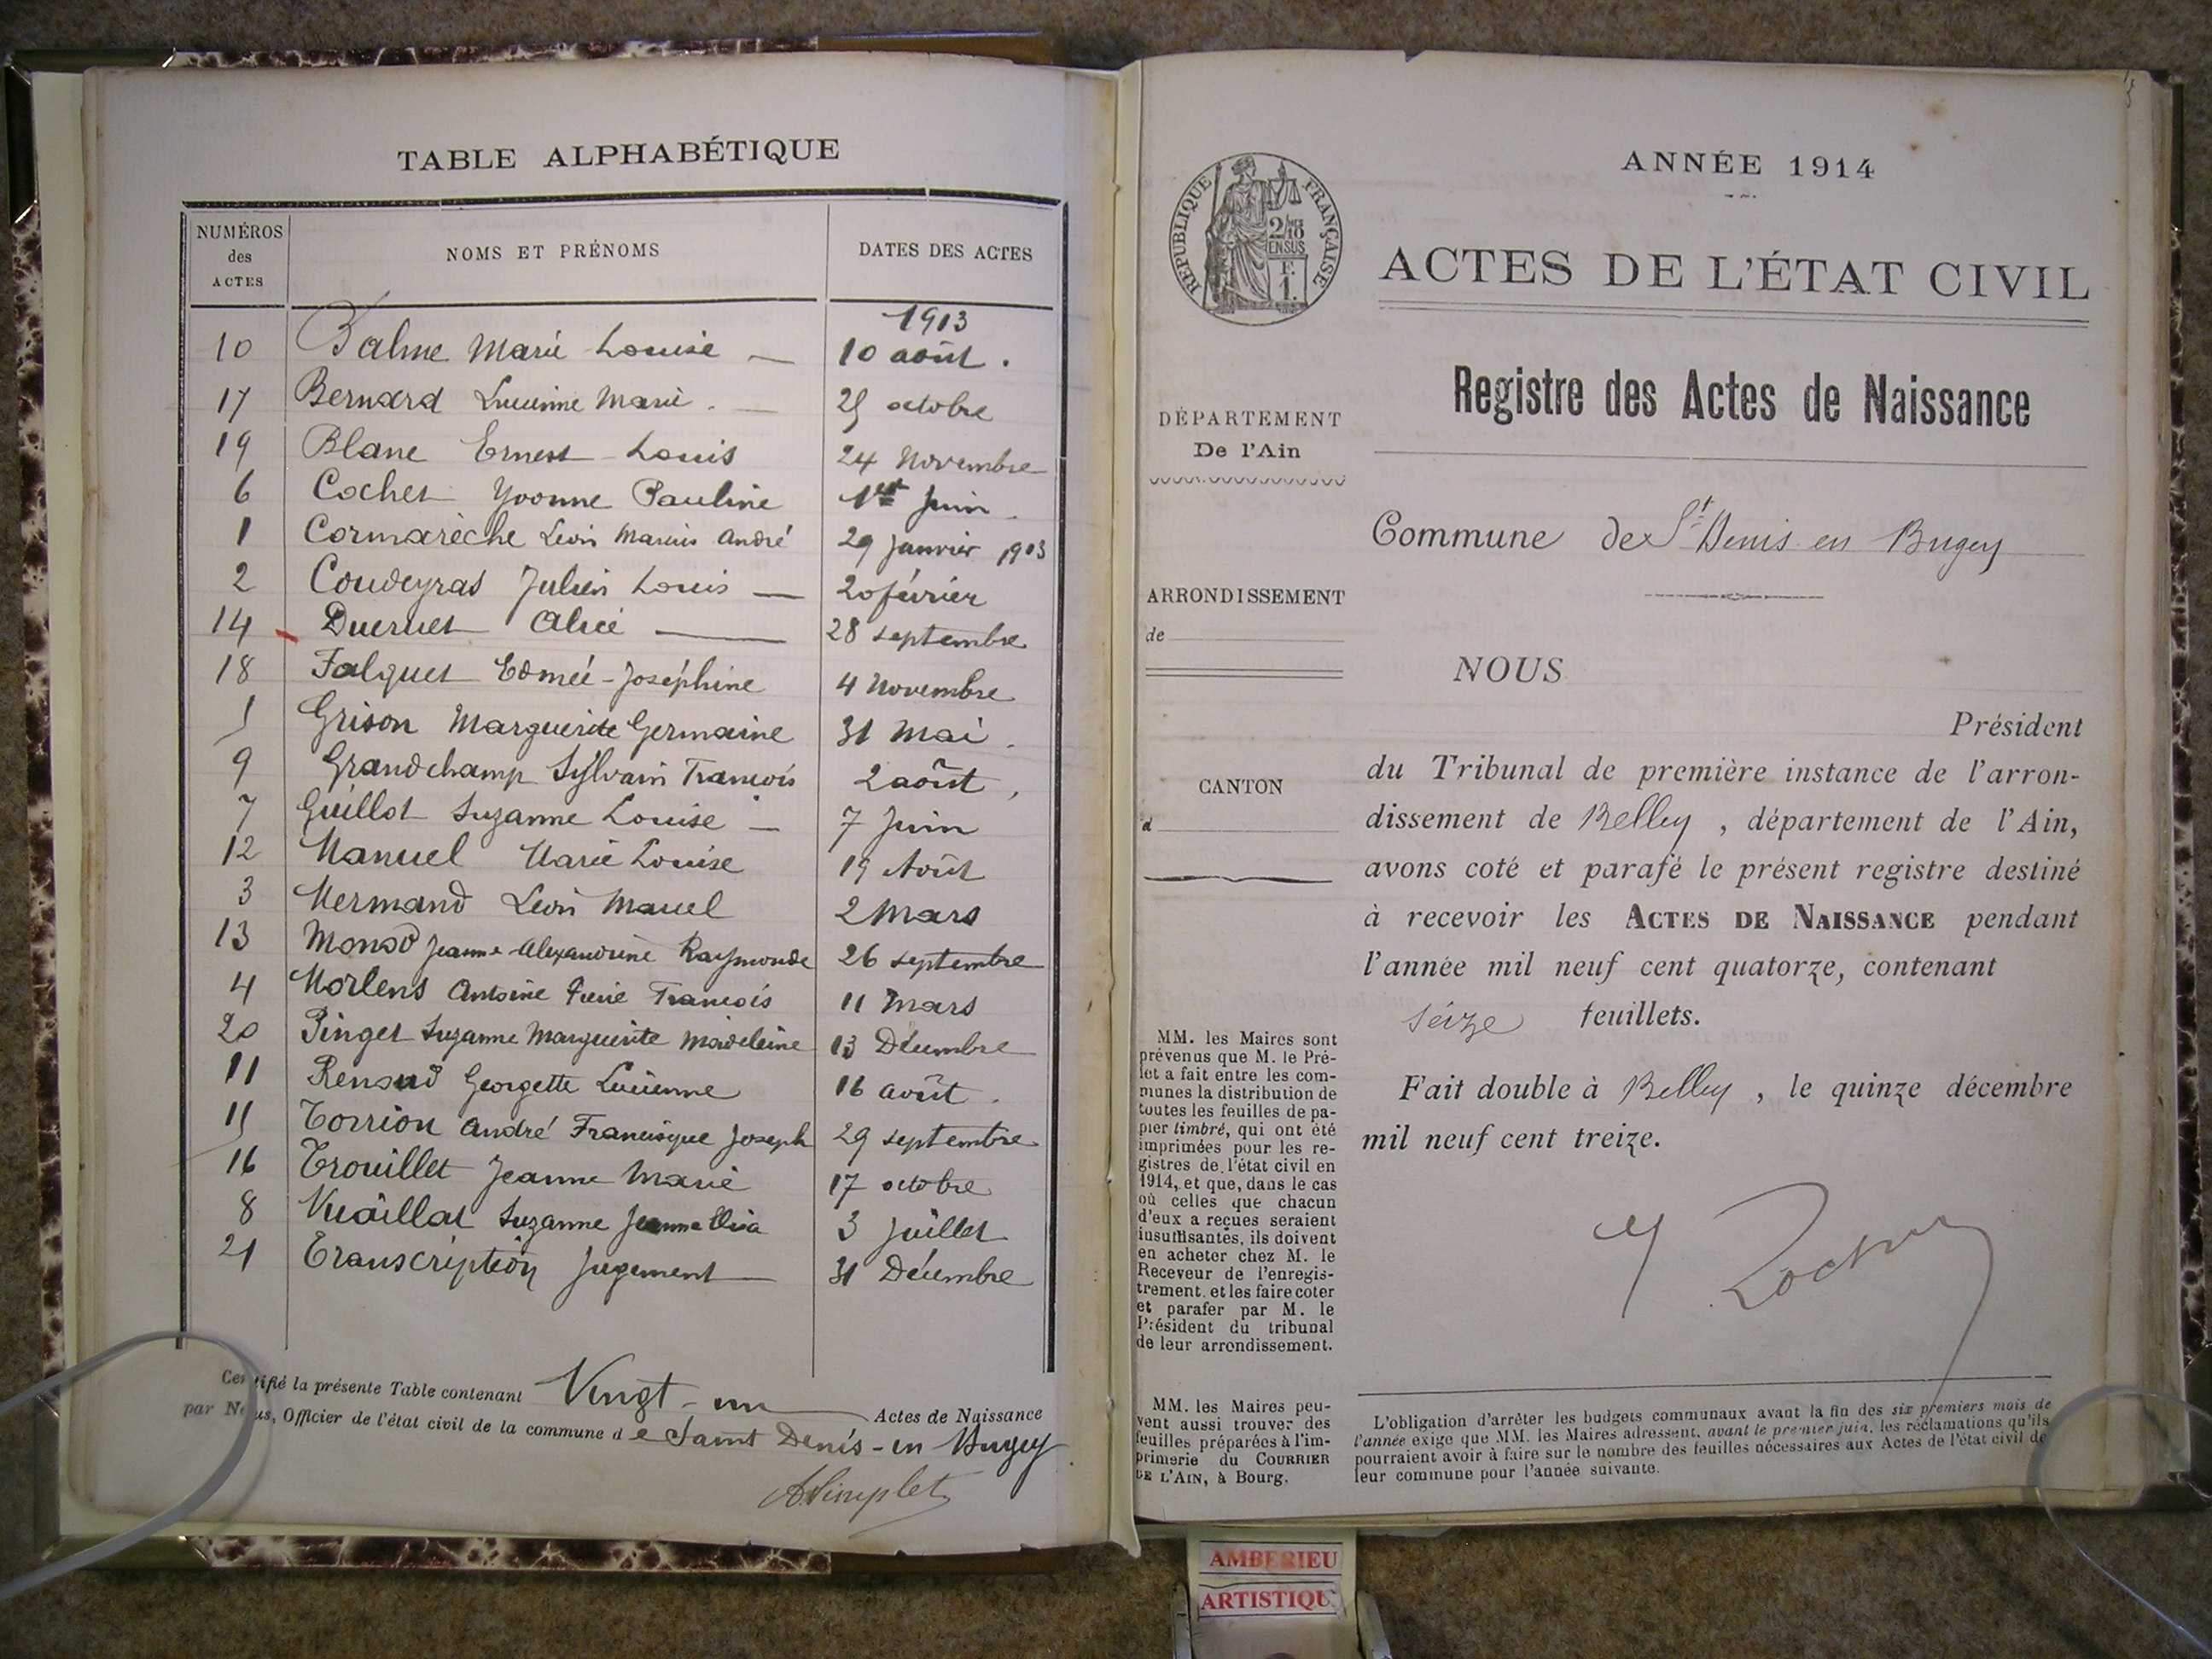 TABLE ALPHABÉTIQUE
NUMÉROS des ACTES NOMS ET PRÉNOMS DATES DES ACTES
1913
10 Balme Marie Louise — 10 août.
17 Bernard Lucienne Marie. — 25 octobre
19 Blanc Ernest Louis 24 Novembre
6 Cochet Yvonne Pauline 1er Juin
1 Cormarèche Léon Marius André 29 janvier 1913
2 Coudeyras Julien Louis — 20 février
14 Ducruet Alice — 28 septembre
18 Falquet Edmée-Joséphine 4 Novembre
5 Grison Marguerite Germaine 31 Mai.
9 Grandchamp Sylvain François 2 août,
7 Guillot Suzanne Louise — 7 Juin
12 Manuel Marie Louise 19 Août
3 Mermand Léon Marcel 2 Mars
13 Monod Jeanne Alexandrine Raymonde 26 septembre
4 Morlens Antoine François 11 Mars
20 Pinget Suzanne Marguerite Madeleine 13 Décembre
11 Renaud Georgette Lucienne 16 août.
15 Torrion André Francisque Joseph 29 septembre
16 Trouillet Jeanne Marie 17 octobre
8 Vuaillat Suzanne Jeanne 3 Juillet
21 Transcription Jugement — 31 Décembre
Certifié la présente Table contenant Vingt-un Actes de Naissance
par Nous, Officier de l'état civil de la commune de Saint Denis-en-Bugey
ASimplet
ANNÉE 1914
RÉPUBLIQUE FRANÇAISE
2/10 EN SUS
F.
1.
ACTES DE L'ÉTAT CIVIL
Registre des Actes de Naissance
DÉPARTEMENT
De l'Ain
Commune de St Denis en Bugey
ARRONDISSEMENT
de
CANTON
d
NOUS
Président
du Tribunal de première instance de l'arron-
dissement de Belley, département de l'Ain,
avons coté et parafé le présent registre destiné
à recevoir les ACTES DE NAISSANCE pendant
l'année mil neuf cent quatorze, contenant
seize feuillets.
Fait double à Belley, le quinze décembre
mil neuf cent treize.
MM. les Maires sont
prévenus que M. le Pré-
fet a fait entre les com-
munes la distribution de
toutes les feuilles de pa-
pier timbré, qui ont été
imprimées pour les re-
gistres de l'état civil en
1914, et que, dans le cas
où celles que chacun
d'eux a reçues seraient
insuffisantes, ils doivent
en acheter chez M. le
Receveur de l'enregis-
trement. et les faire coter
et parafer par M. le
Président du tribunal
de leur arrondissement.
MM. les Maires peu-
vent aussi trouver des
feuilles préparées à l'im-
primerie du COURRIER
DE L'AIN, à Bourg.
L'obligation d'arrêter les budgets communaux avant la fin des six premiers mois de
l'année exige que MM. les Maires adressent, avant le premier juin, les réclamations qu'ils
pourraient avoir à faire sur le nombre des feuilles nécessaires aux Actes de l'état civil de
leur commune pour l'année suivante.
AMBERIEU
ARTISTIQU